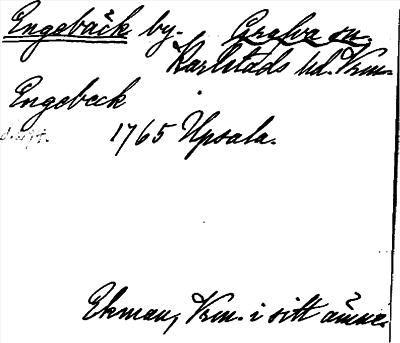 Engebäck by. Grava sn.
Karlstads hd. Vrm.
Engebeck
1765 Upsala.
Ekman, Vrm. i sitt ämne.